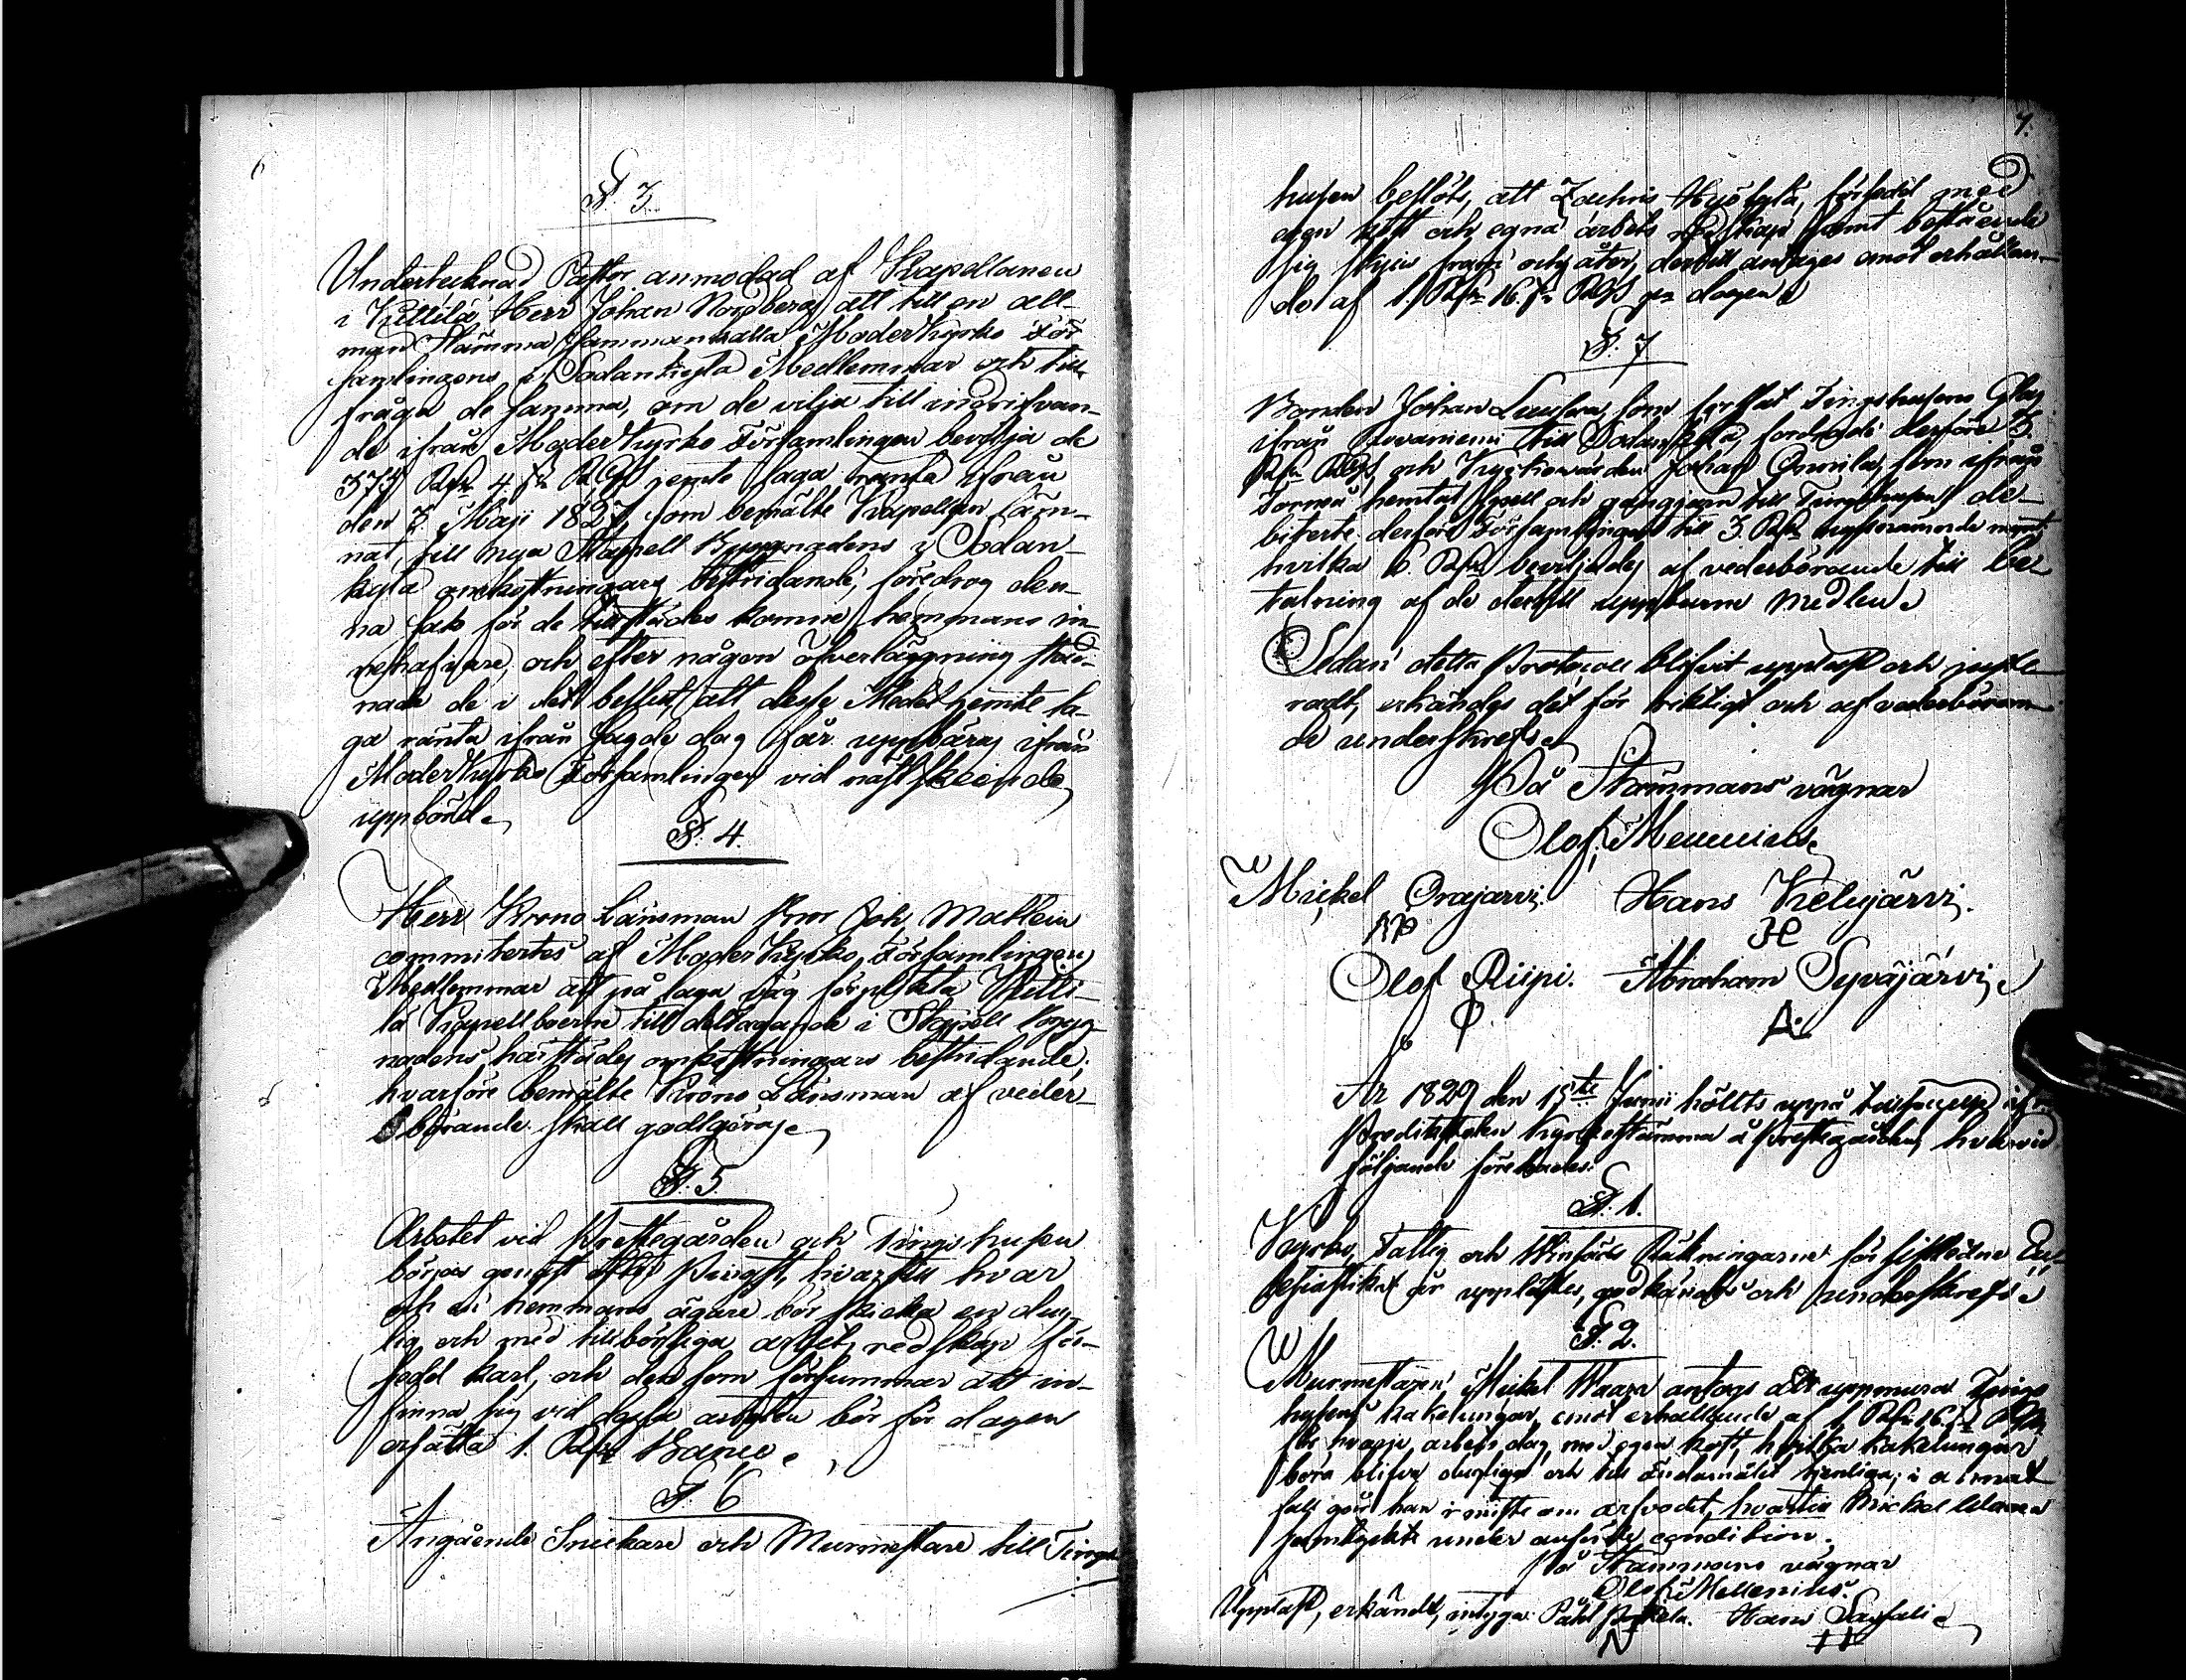 6
§. 3.
Undertecknad Pastor anmodad af Kapellanen
i Kittilä Herr Johan Nordberg att till en all-
män Stämma sammankalla Moderkyrko För-
samlingens i Sodankylä Medlemmar och till-
fråga de samma, om de vilja till indrifvan-
de ifrån Moderkyrko Församlingen bevilja de
373 Rdr 4 s. RGS jemte laga ränta ifrån
den 3 Maji 1827, som bemälte Kapellan läm-
nat till nya Stapell Byggnadens i Sodan-
kylä omkostningars bestridande, föredrog den-
na sak för de tillstädes komne hemmans in-
nehafvare, och efter någon öfverläggning stad-
nade de i det beslut, att desse Medel jemte la-
ga ränta ifrån sagde dag får uppbäras ifrån
Moderkyrko Församlingen vid näst skeende
uppbörd.
§. 4.
Herr Krono Länsman Joh. Mathlein
committertes af Moderkyrko Församlingens
Medlemmar att på laga väg förplikta Kitti-
lä Kapellboerne till deltagande i Stapell bygg-
nadens härstädes omkostningars bestridande;
hvarföre bemälte Krono Länsman af veder-
börande skall godtgöras.
§. 5.
Arbetet vid Prestegården och Tingshusen
börjas genast efter Pingst, hvartill hvar
och en hemmans ägare bör skicka en dug-
lig och med tillbörliga arbets redskap för-
sedd karl, och den som försummar att in-
finna sig vid dessa arbeten bör för dagen
ersätta 1. Rdr Banco.
§. 6
Angående Snickare och Murmestare till Tings-
7.
husen beslöts, att Zachris Hyökylä, försedd med
egen kost och egna arbets redskap samt bestående
sig skjuts fram och åter, dertill antages emot erhållan-
de af 1. Rdr 16. s. RGS pr dagen.
§. 7
Bonden Johan Luusua, som forslat Tingshusens Glas
ifrån Rovaniemi till Sodankylä, fordrade derföre 3.
Rdr RGS, och Kyrkovärden Johan Onnila, som ifrån
Torneå hemtat spell och gångjern till Tingshusen de-
biterte derföre Församlingen till 3. Rdr nyssnämnde mynt,
hvilka 6. Rdr beviljades af vederbörande till be-
talning af de dertill uppburne medlen.
Sedan detta Protocoll blifvit uppläst och juste-
radt, erkändes det för riktigt och af vederböran-
de underskrefs.
På Stämmans vägnar
Olof Mellenius.
Mickel Orajärvi. Hans Kelujärvi.
Olof Riipi. Abraham Syväjärvi.
A.
År 1829 den 15de Junii hölts uppå
Predikstolen kyrkostämma å Prestegården, hvarvid
följande förehades:
§. 1.
Kyrko, Fattig och Räkningarne för sistledne Ecc-
lesiastikt år upplästes, godkändes och underskrefs.
§. 2.
Murmestaren Mickel Waara antogs att uppmura Tings
husens kakelugnar, emot erhållande af 1. Rdr 16. s. RGS
för hvarje arbetsdag med egen kost, hvilka kakelungar
böra blifva dugliga och till ändamålet tjenliga; i annat
fall går han i miste om arfvodet, hvartill Mickel Waara
samtyckte under anförde condition.
På Stämmans vägnar
Olof Mellenius.
Uppläst, erkändt, intyga: Påhl Hans